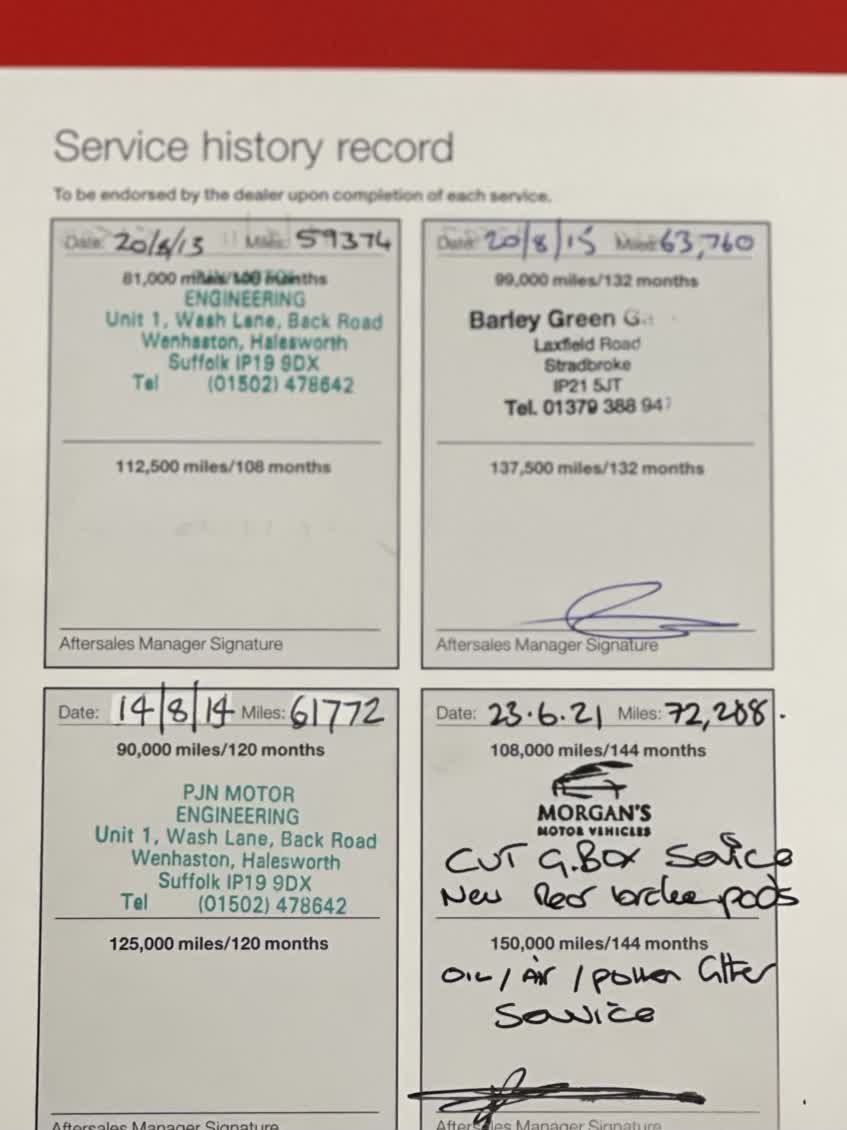 Service history record
To be endorsed by the dealer upon completion of each service.
Date: 20/8/13 Miles: 59374
81,000 miles/108 months
ENGINEERING
Unit 1, Wash Lane, Back Road
Wenhaston, Halesworth
Suffolk IP19 9DX
Tel (01502) 478642
112,500 miles/108 months
Aftersales Manager Signature
Date: 20/8/15 Miles: 63,760
99,000 miles/132 months
Barley Green
Laxfield Road
Stradbroke
IP21 5JT
Tel. 01379 388 947
137,500 miles/132 months
Aftersales Manager Signature
Date: 14/8/14 Miles: 61772
90,000 miles/120 months
PJN MOTOR
ENGINEERING
Unit 1, Wash Lane, Back Road
Wenhaston, Halesworth
Suffolk IP19 9DX
Tel (01502) 478642
125,000 miles/120 months
Aftersales Manager Signature
Date: 23.6.21 Miles: 72,288.
108,000 miles/144 months
MORGAN'S
MOTOR VEHICLES
CVT G.BOX Service
New Rear brake pads
150,000 miles/144 months
OIL / AIR / pollen filter
Service
Aftersales Manager Signature